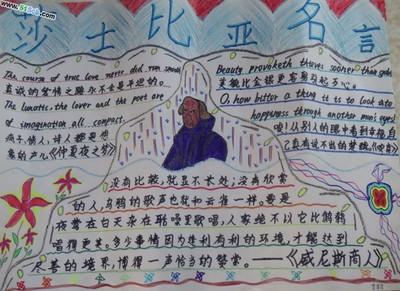 www.51ab.com
莎士比亚名言
The course of true love never did run smooth
真诚的爱情之路永不会是平坦的。
The lunatic, the lover and the poet are
of imagination all compact.
疯子、情人、诗人都是想
象的产儿《仲夏夜之梦》
Beauty provoketh thieves sooner than gold
美貌比金银更容易引起歹心
O, how bitter a thing it is to look into
happiness through another man's eyes!
唉！从别人的眼中看到幸福,自
己真有说不出的梦魇。
没有比较,就显不长处;没有欣赏
的人,乌鸦的歌声也就和云雀一样。要是
夜莺在白天杂在聒噪里歌唱,人家绝不以它比鹪鹩
唱得更美。多少事情因为逢到有利的环境,才能达到
尽善的境界,博得一声恰当的赞赏。——《威尼斯商人》